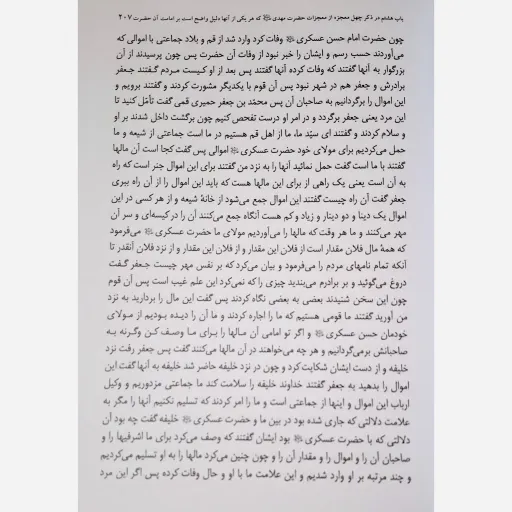 باب هشتم در ذکر چهل معجزه از معجزات حضرت مهدی ﷺ که هر یکی از آنها دلیل واضح است بر امامت آن حضرت ۴۰۷
چون حضرت امام حسن عسکری ﷺ وفات کرد وارد شد از قم و بلاد جماعتی با اموالی که
می‌آوردند حسب رسم و ایشان را خبر نبود از وفات آن حضرت پس چون پرسیدند از آن
بزرگوار به آنها گفتند که وفات کرده آنها گفتند پس بعد از او کیست مردم گفتند جعفر
برادرش و جعفر هم در شهر نبود پس آن قوم با یکدیگر مشورت کردند و گفتند برویم و
این اموال را برگردانیم به صاحبان آن پس محمّد بن جعفر حمیری قمی گفت تأمّل کنید تا
این مرد یعنی جعفر برگردد و در امر او درست تفحص کنیم چون برگشت داخل شدند بر او
و سلام کردند و گفتند ای سیّد ما، ما از اهل قم هستیم در ما است جماعتی از شیعه و ما
حمل می‌کردیم برای مولای خود حضرت عسکری ﷺ اموالی پس گفت کجا است آن مالها
گفتند با ما است گفت حمل نمائید آنها را به نزد من گفتند برای این اموال جنر است که راه
به آن است یعنی یک راهی از برای این مالها هست که باید این اموال را از آن راه ببری
جعفر گفت آن راه چیست گفتند این اموال جمع می‌شود از خانهٔ شیعه و از هر کسی در این
اموال یک دینا و دو دینار و زیاد و کم هست آنگاه جمع می‌کنند آن را در کیسه‌ای و سر آن
مهر می‌کنند و ما هر وقت که مالها را می‌آوردیم مولای ما حضرت عسکری ﷺ می‌فرمود
که همهٔ مال فلان مقدار است از فلان این مقدار و از فلان این مقدار و از نزد فلان آنقدر تا
آنکه تمام نامهای مردم را می‌فرمود و بیان می‌کرد که بر نفس مهر چیست جعفر گفت
دروغ می‌گوئید و بر برادرم می‌بندید چیزی را که نمی‌کرد این علم غیب است پس آن قوم
چون این سخن شنیدند بعضی به بعضی نگاه کردند پس گفت این مال را بردارید به نزد
من آورید گفتند ما قومی هستیم که ما را اجاره کردند و ما آن را دیده بودیم از مولای
خودمان حسن عسکری ﷺ و اگر تو امامی آن مالها را برای ما وصف کن وگرنه به
صاحبانش برمی‌گردانیم و هر چه می‌خواهند در آن مالها می‌کنند گفت پس جعفر رفت نزد
خلیفه و از دست ایشان شکایت کرد و چون در نزد خلیفه حاضر شد خلیفه به آنها گفت این
اموال را بدهید به جعفر گفتند خداوند خلیفه را سلامت کند ما جماعتی مزدوریم و وکیل
ارباب این اموال و اینها از جماعتی است و ما را امر کردند که تسلیم نکنیم آنها را مگر به
علامت دلالتی که جاری شده بود در بین ما و حضرت عسکری ﷺ خلیفه گفت چه بود آن
دلالتی که با حضرت عسکری ﷺ بود ایشان گفتند که وصف می‌کرد برای ما اشرفیها را و
صاحبان آن را و اموال را و مقدار آن را و چون چنین می‌کرد مالها را به او تسلیم می‌کردیم
و چند مرتبه بر او وارد شدیم و این علامت ما با او و حال وفات کرده پس اگر این مرد